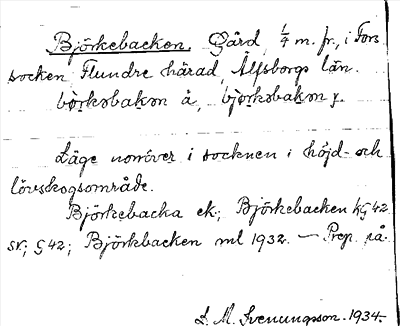 Björkebacken, Gård, 1/4 m. fr., i Fors
socken, Flundre härad, Älfsborgs län.
bòrkəbakən å, bjòrkəbakən y.
Läge norröver i socknen i höjd- och
lövskogsområde.
Björkebacka ek; Björkebacken kG42
sv; G42; Björkbacken ml 1932. – Prep. på.
S. M. Svenungsson. 1934.